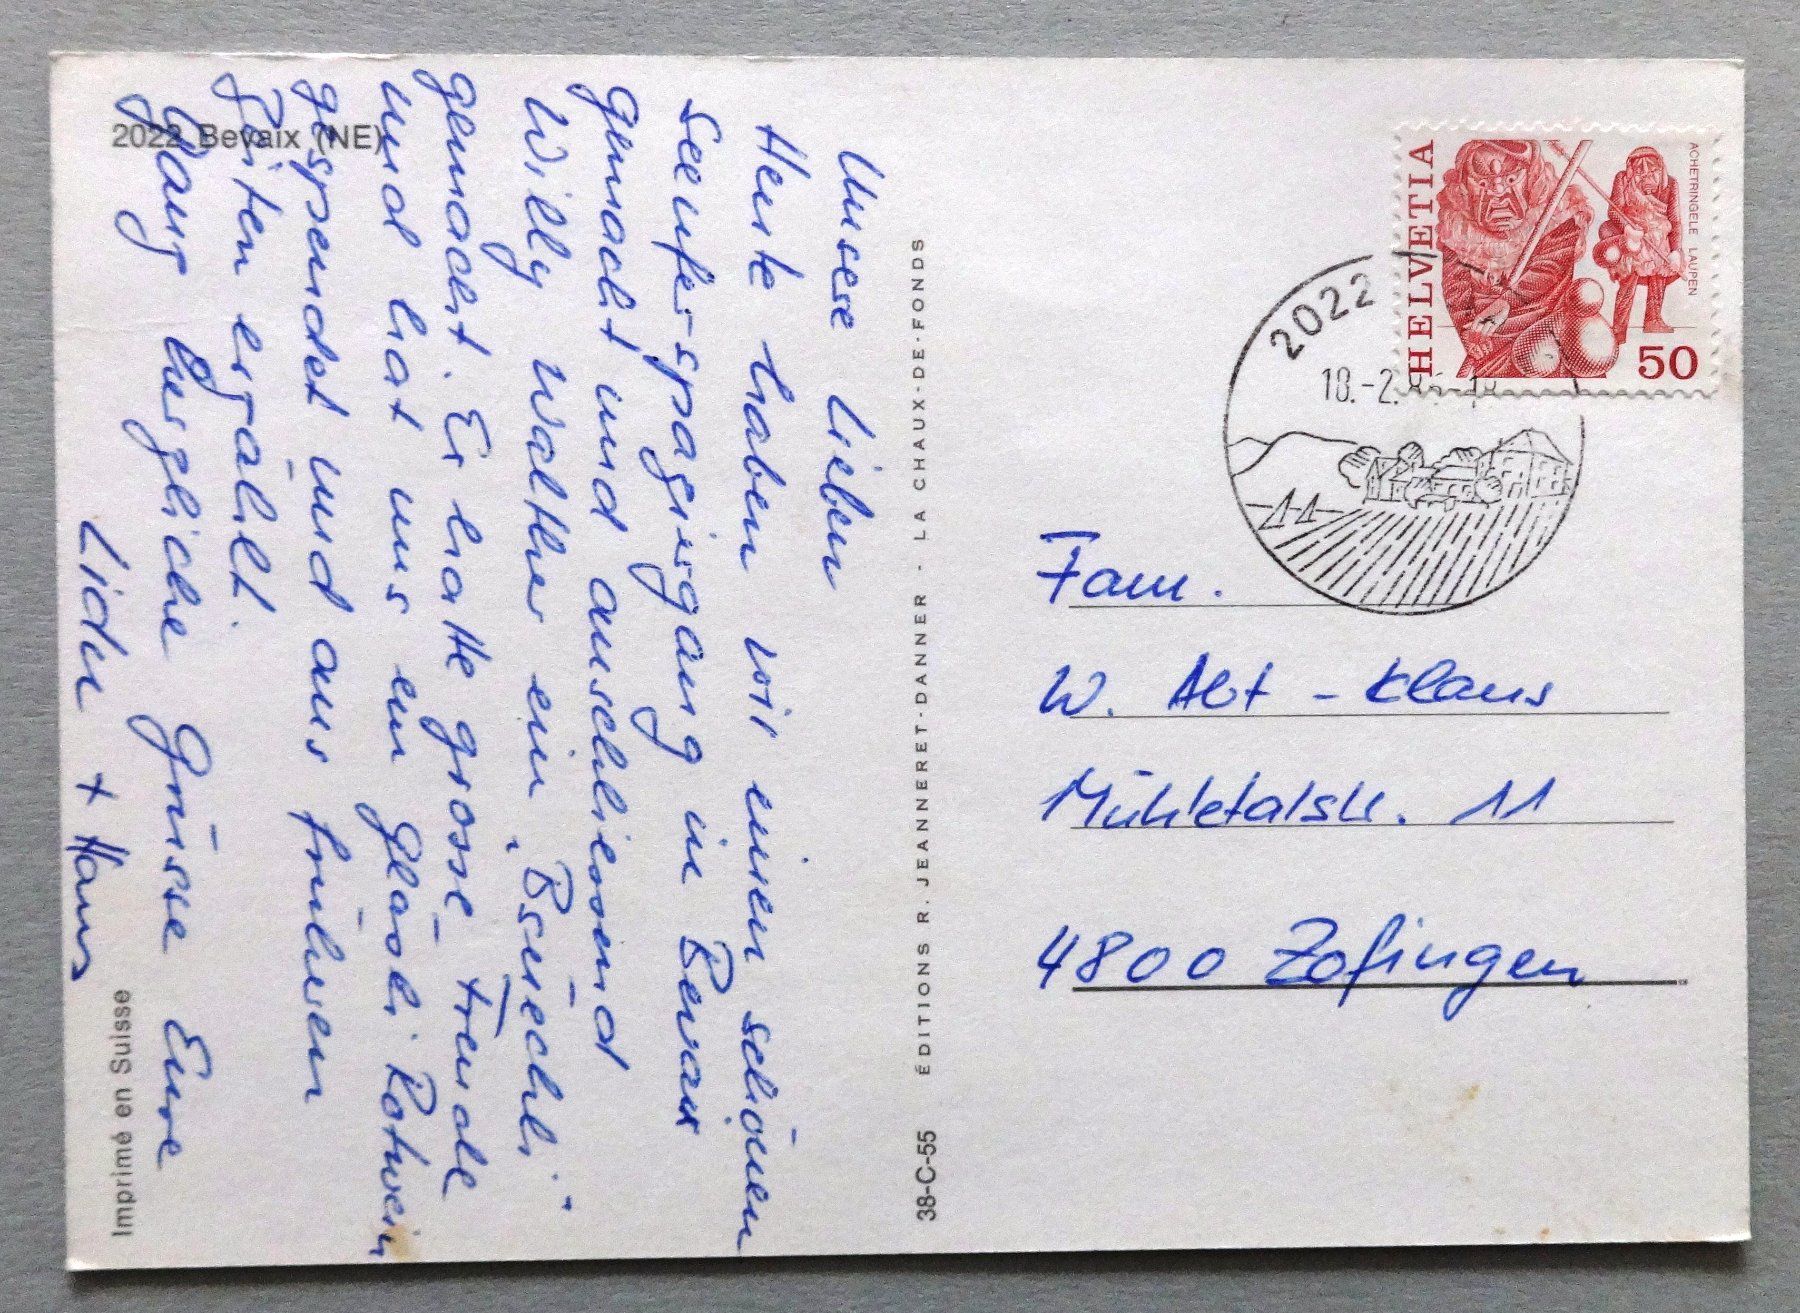 2022 Bevaix (NE)
Unsere Lieben
Heute haben wir einen schönen
Seeuferspaziergang in Bevaix
gemacht und anschliessend
Willy Walther ein „Bsüechli"
gemacht. Er hatte grosse Freude
und hat uns ein Gläsli Rotwein
gespendet und aus früheren
Zeiten erzählt.
Ganz herzliche Grüsse Eure
+ Hans
Imprimé en Suisse
38-C-55
ÉDITIONS R. JEANNERET-DANNER - LA CHAUX-DE-FONDS
HELVETIA
ACHETRINGELE LAUPEN
50
2022
18.-2.
Fam.
W. Abt - Klaus
Mühletalstr. 11
4800 Zofingen